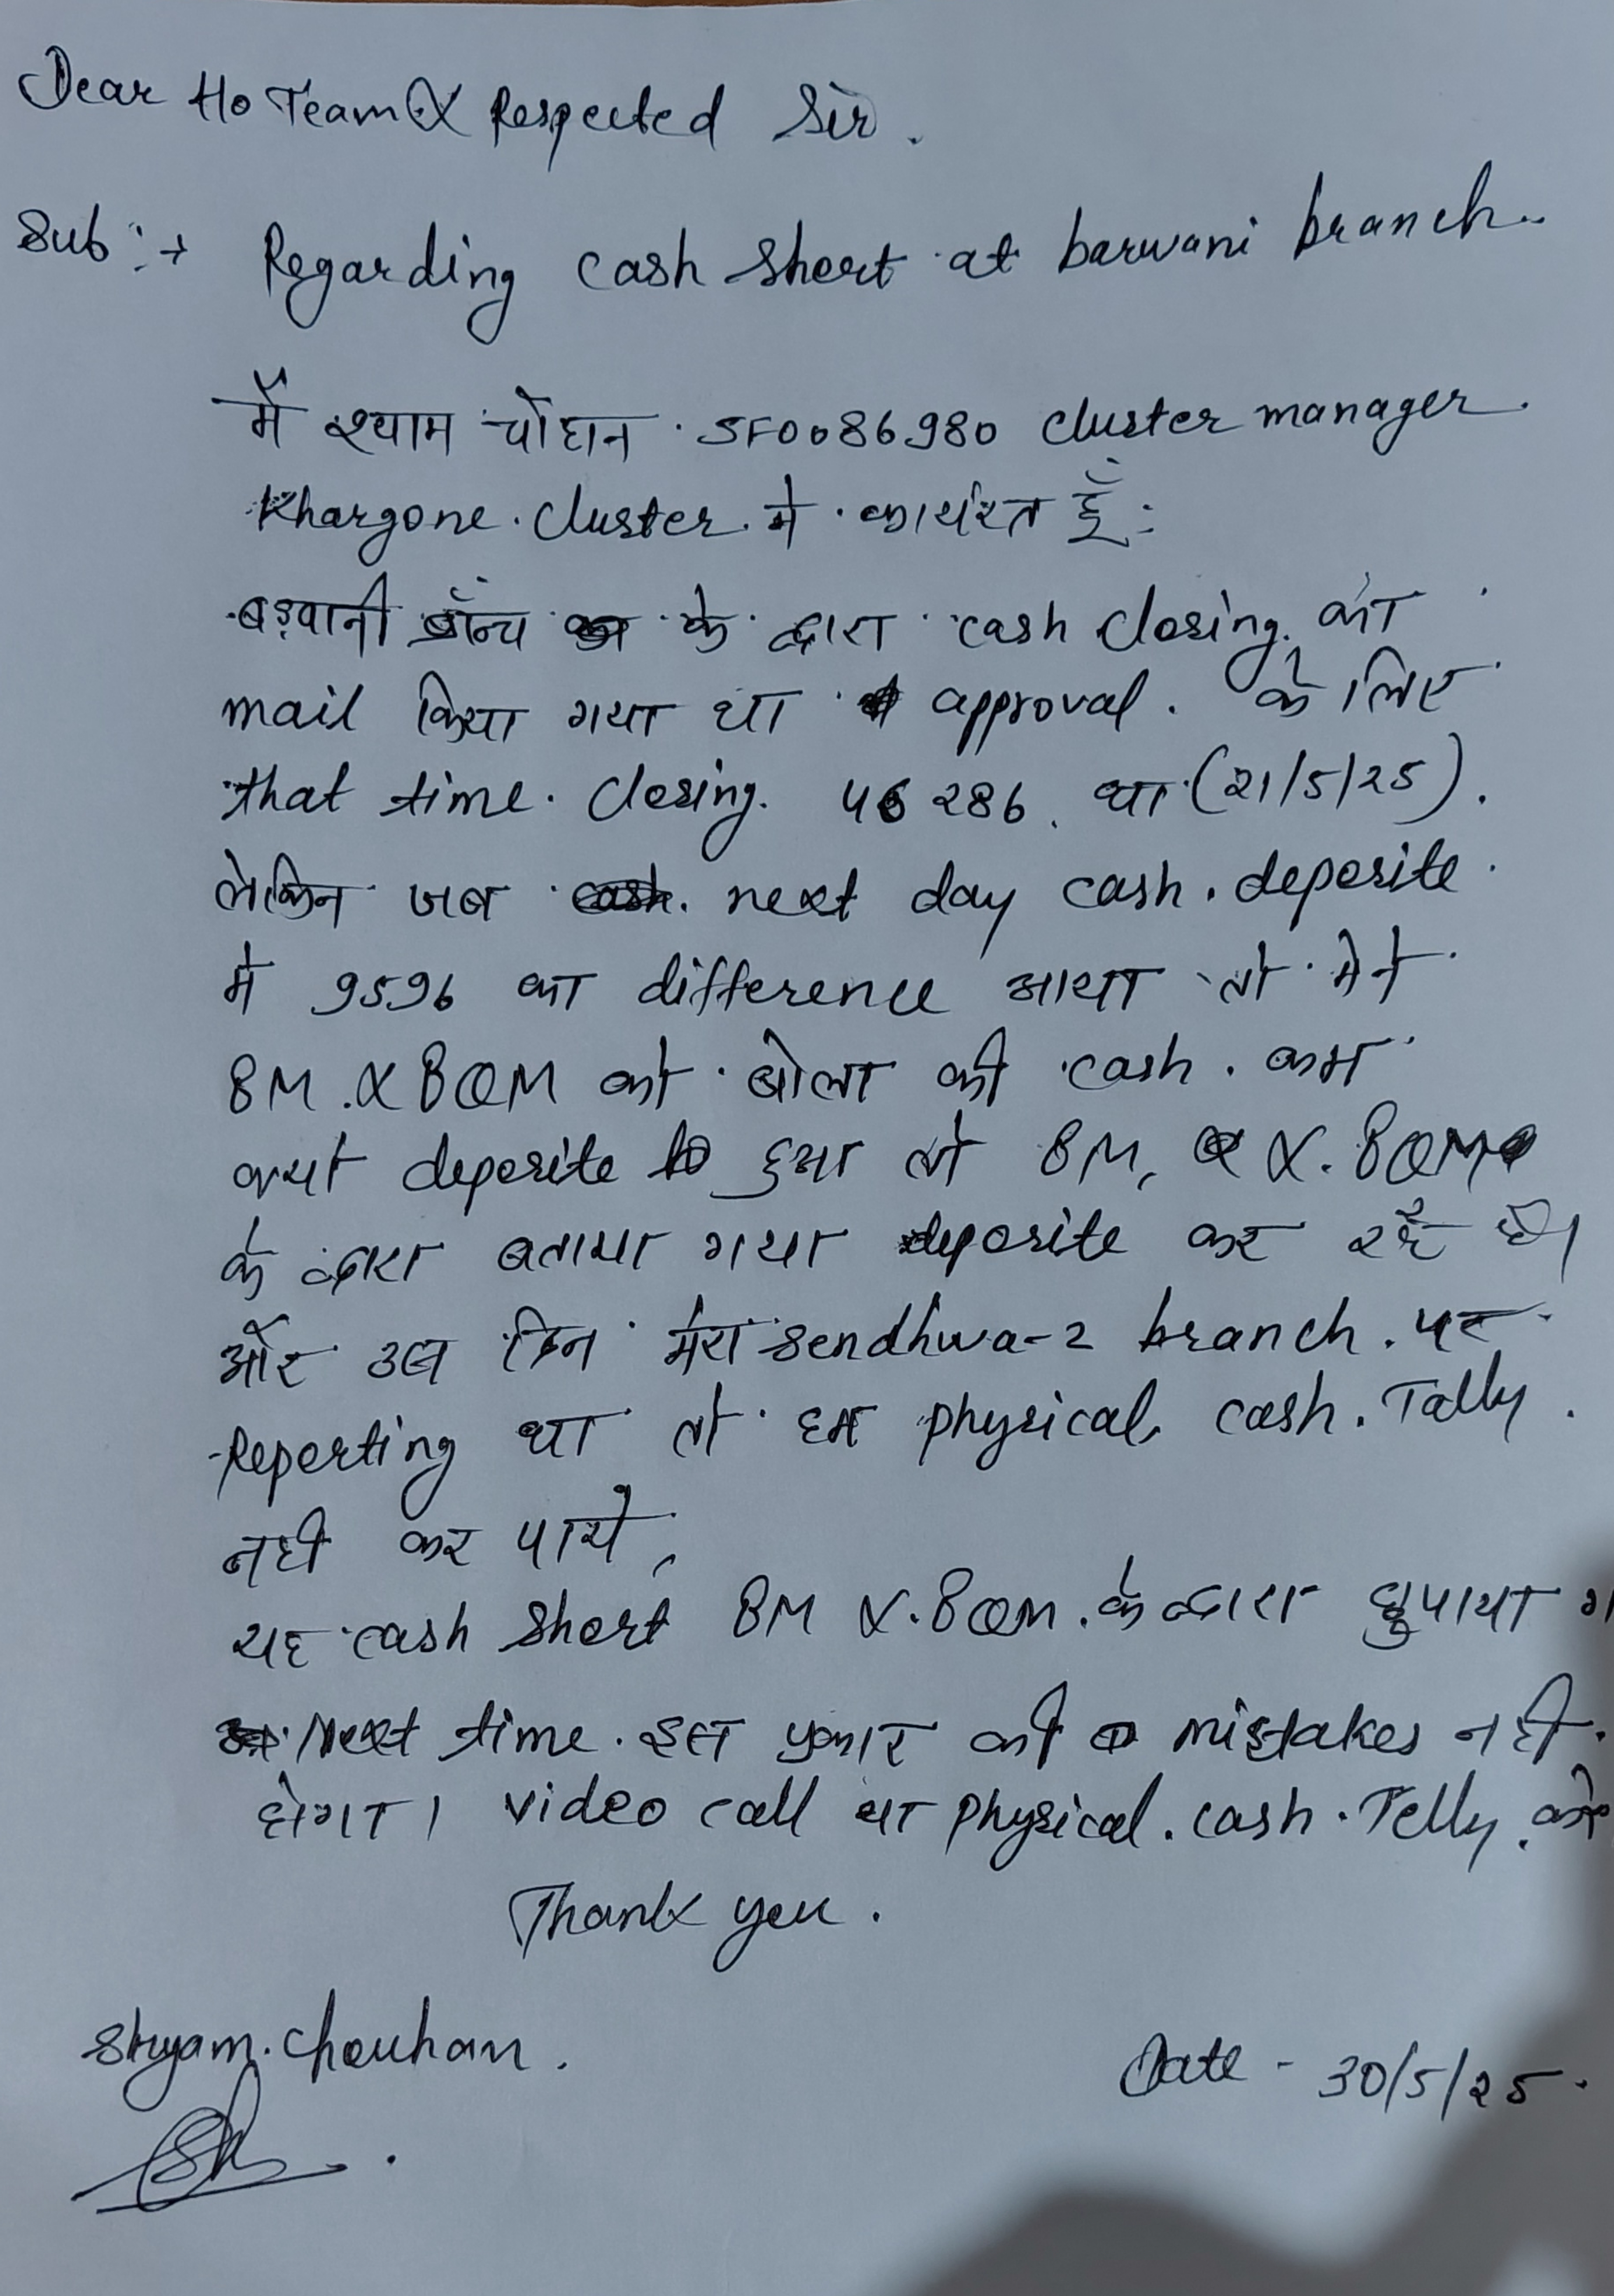 Dear Ho Team & Respected Sir.
Sub :→ Regarding cash short at barwani branch..
मैं श्याम चौहान SF0086980 cluster manager.
Khargone. cluster. मे कार्यरत हूँ:
बड़वानी ब्रॉन्च के द्वारा cash closing. का
mail किया गया था approval. के लिए
that time. closing. 46286. था (21/5/25).
लेकिन जब next day cash. deposite.
मे 9596 का difference आया तो मेने
BM. & BQM को बोला की cash. कम
क्यो deposite हुआ तो BM, &. BQM
के द्वारा बताया गया deposite कर रहे है।
और उस दिन मेरा sendhwa-2 branch. पर
Reporting था तो हम physical, cash. Tally.
नही कर पाये,
यह cash short BM &. BQM. के द्वारा छुपाया
Next time. इस प्रकार की mistakes नही.
होगा। video call या physical. cash. Telly.
Thank you.
Shyam. Chouhan.
Date - 30/5/25.